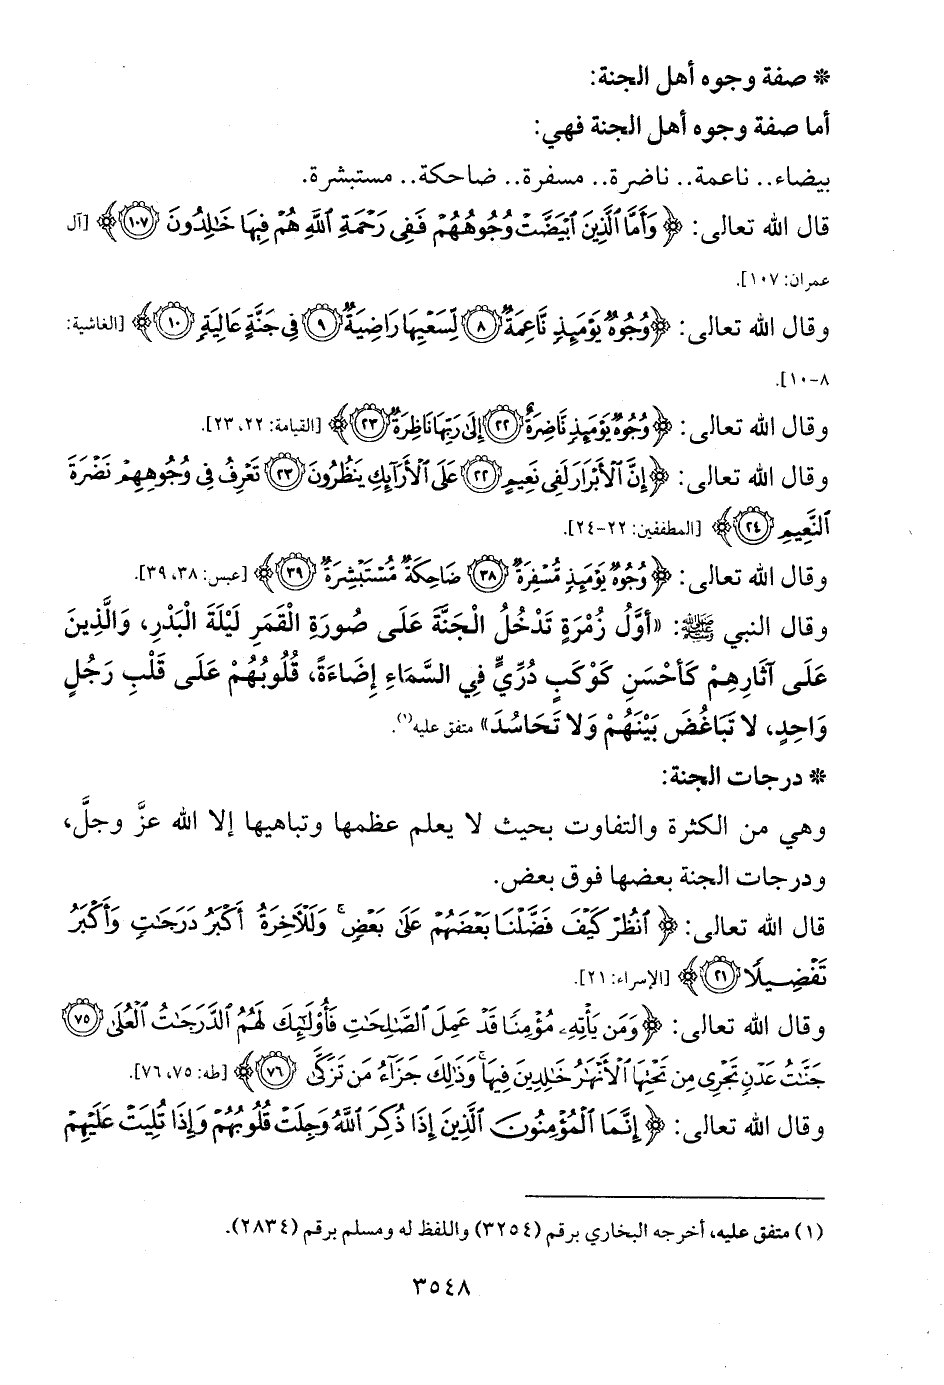 * صفة وجوه أهل الجنة:
أما صفة وجوه أهل الجنة فهي:
بيضاء.. ناعمة.. ناضرة.. مسفرة.. ضاحكة.. مستبشرة.
قال الله تعالى: ﴿وَأَمَّا ٱلَّذِينَ ٱبۡيَضَّتۡ وُجُوهُهُمۡ فَفِي رَحۡمَةِ ٱللَّهِ هُمۡ فِيهَا خَٰلِدُونَ ١٠٧﴾ [آل
عمران: ١٠٧].
وقال الله تعالى: ﴿وُجُوهٞ يَوۡمَئِذٖ نَّاعِمَةٞ ٨ لِّسَعۡيِهَا رَاضِيَةٞ ٩ فِي جَنَّةٍ عَالِيَةٖ ١٠﴾ [الغاشية:
٨-١٠].
وقال الله تعالى: ﴿وُجُوهٞ يَوۡمَئِذٖ نَّاضِرَةٌ ٢٢ إِلَىٰ رَبِّهَا نَاظِرَةٞ ٢٣﴾ [القيامة: ٢٢، ٢٣].
وقال الله تعالى: ﴿إِنَّ ٱلۡأَبۡرَارَ لَفِي نَعِيمٍ ٢٢ عَلَى ٱلۡأَرَآئِكِ يَنظُرُونَ ٢٣ تَعۡرِفُ فِي وُجُوهِهِمۡ نَضۡرَةَ
ٱلنَّعِيمِ ٢٤﴾ [المطففين: ٢٢-٢٤].
وقال الله تعالى: ﴿وُجُوهٞ يَوۡمَئِذٖ مُّسۡفِرَةٞ ٣٨ ضَاحِكَةٞ مُّسۡتَبۡشِرَةٞ ٣٩﴾ [عبس: ٣٨، ٣٩].
وقال النبي ﷺ: «أَوَّلُ زُمْرَةٍ تَدْخُلُ الْجَنَّةَ عَلَى صُورَةِ الْقَمَرِ لَيْلَةَ الْبَدْرِ، وَالَّذِينَ
عَلَى آثَارِهِمْ كَأَحْسَنِ كَوْكَبٍ دُرِّيٍّ فِي السَّمَاءِ إِضَاءَةً، قُلُوبُهُمْ عَلَى قَلْبِ رَجُلٍ
وَاحِدٍ، لا تَبَاغُضَ بَيْنَهُمْ وَلا تَحَاسُدَ» متفق عليه(١).
* درجات الجنة:
وهي من الكثرة والتفاوت بحيث لا يعلم عظمها وتباهيها إلا الله عزَّ وجلَّ،
ودرجات الجنة بعضها فوق بعض.
قال الله تعالى: ﴿ٱنظُرۡ كَيۡفَ فَضَّلۡنَا بَعۡضَهُمۡ عَلَىٰ بَعۡضٖۚ وَلَلۡأٓخِرَةُ أَكۡبَرُ دَرَجَٰتٖ وَأَكۡبَرُ
تَفۡضِيلٗا ٢١﴾ [الإسراء: ٢١].
وقال الله تعالى: ﴿وَمَن يَأۡتِهِۦ مُؤۡمِنٗا قَدۡ عَمِلَ ٱلصَّٰلِحَٰتِ فَأُوْلَٰٓئِكَ لَهُمُ ٱلدَّرَجَٰتُ ٱلۡعُلَىٰ ٧٥
جَنَّٰتُ عَدۡنٖ تَجۡرِي مِن تَحۡتِهَا ٱلۡأَنۡهَٰرُ خَٰلِدِينَ فِيهَاۚ وَذَٰلِكَ جَزَآءُ مَن تَزَكَّىٰ ٧٦﴾ [طه: ٧٥، ٧٦].
وقال الله تعالى: ﴿إِنَّمَا ٱلۡمُؤۡمِنُونَ ٱلَّذِينَ إِذَا ذُكِرَ ٱللَّهُ وَجِلَتۡ قُلُوبُهُمۡ وَإِذَا تُلِيَتۡ عَلَيۡهِمۡ
(١) متفق عليه، أخرجه البخاري برقم (٣٢٥٤) واللفظ له ومسلم برقم (٢٨٣٤).
٣٥٤٨